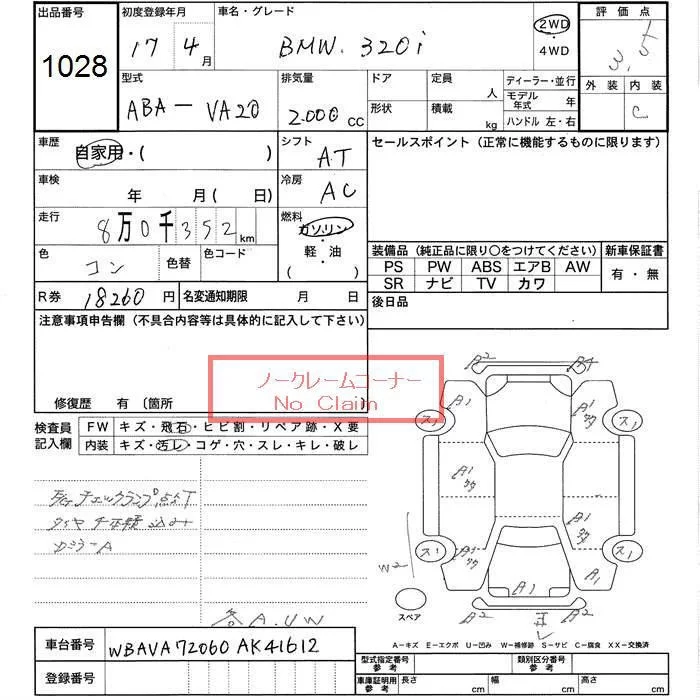 出品番号
1028
初度登録年月
17 4 月
車名・グレード
BMW. 320i
2WD
・
4WD
評価点
3.5
外装 内装
C
型式
ABA－VA20
排気量
2.000 cc
ドア
形状
定員
人
積載
kg
ディーラー・並行
モデル
年式 年
ハンドル 左・右
車歴
自家用・( )
シフト
AT
車検
年 月( 日)
冷房
AC
走行
8万0千352 km
燃料
ガソリン
・
軽・油
( )
色
コン
色替
色コード
R券 18260 円
名変通知期限 月 日
セールスポイント（正常に機能するものに限ります）
装備品（純正品に限り○をつけてください）
PS PW ABS エアB AW
SR ナビ TV カワ
新車保証書
有・無
後日品
注意事項申告欄（不具合内容等は具体的に記入して下さい）
ノークレームコーナー
No Claim
修復歴 有 〔箇所
検査員
記入欄
FW キズ・飛石・ヒビ割・リペア跡・X要
内装 キズ・汚レ・コゲ・穴・スレ・キレ・破レ
チェックランプ点灯
A.UW
A2
A4
A1
A1
ス1
ス1
A1
A1
A1
A1
ス1
ス1
W2
A1
A1
A2
A2
スペア
A－キズ E－エクボ U－凹み W－補修跡 S－サビ C－腐食 XX－交換済
車台番号 WBAVA72060AK41612
登録番号
型式指定番号
参考
類別区分番号
参考
車庫証明用
参考
長さ cm
幅 cm
高さ cm